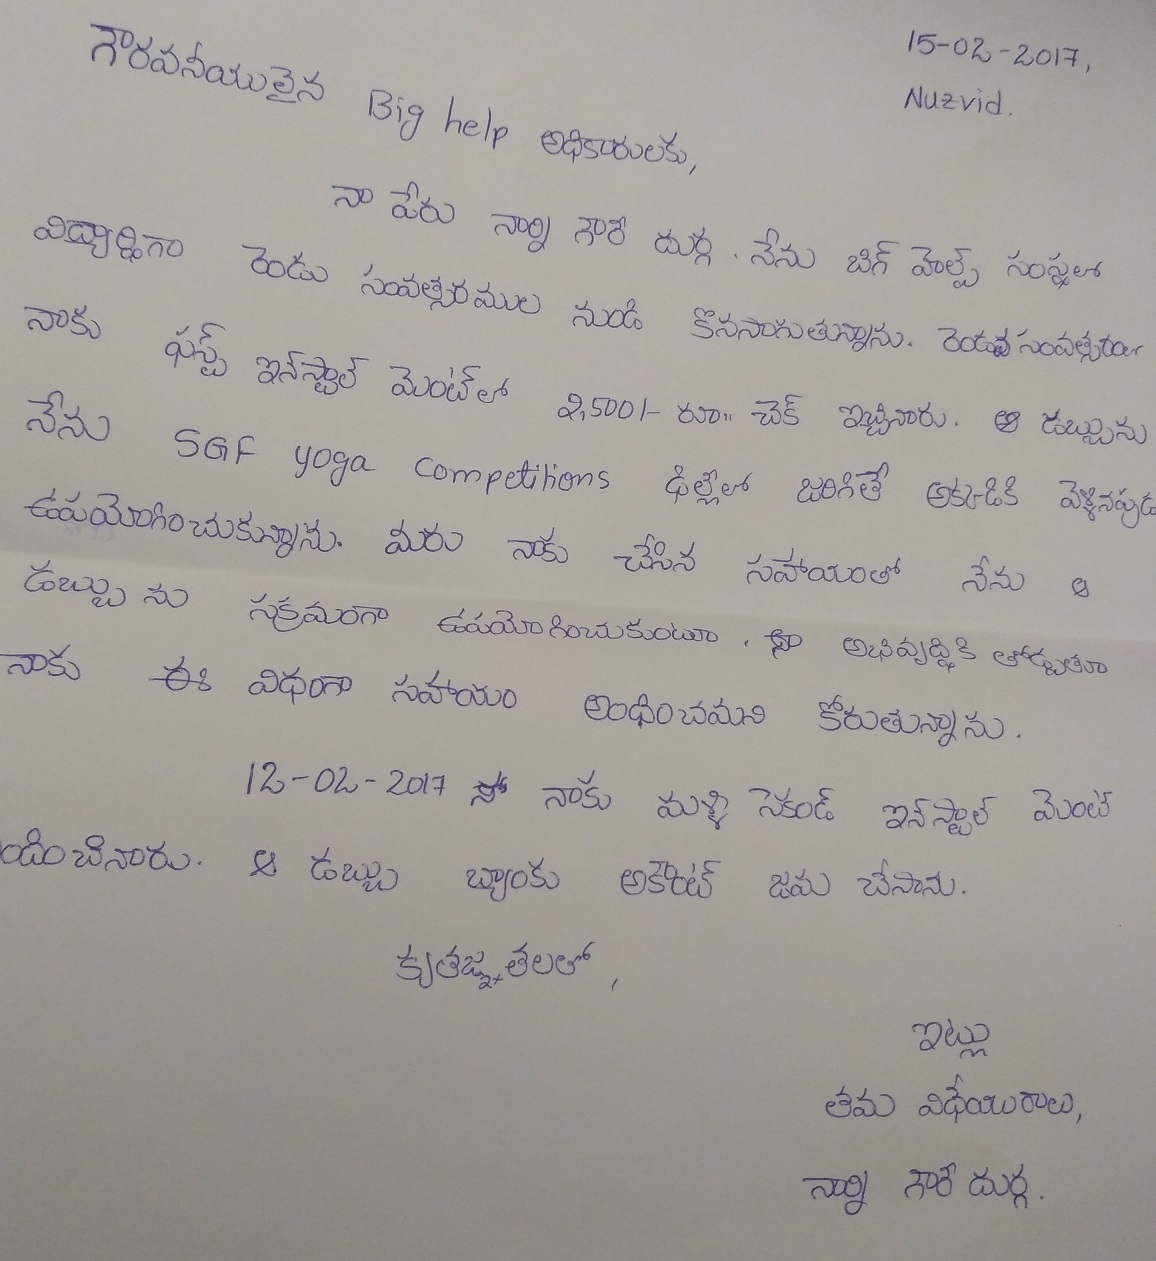 15-02-2017,
Nuzvid.
గౌరవనీయులైన Big help అధికారులకు,
నా పేరు నార్ని గౌరి దుర్గ. నేను బిగ్ హెల్ప్ సంస్థలో
విద్యార్థిగా రెండు సంవత్సరముల నుండి కొనసాగుతున్నాను. రెండవ సంవత్సరం
నాకు ఫస్ట్ ఇన్‌స్టాల్ మెంట్‌లో 2,500/- రూ.. చెక్ ఇచ్చినారు. ఆ డబ్బును
నేను SGF yoga competitions ఢిల్లీలో జరిగితే అక్కడికి వెళ్లినపుడు
ఉపయోగించుకున్నాను. మీరు నాకు చేసిన సహాయంతో నేను ఆ
డబ్బు ను సక్రమంగా ఉపయోగించుకుంటూ, నా అభివృద్ధికి తోడ్పుతూ
నాకు ఈ విధంగా సహాయం అంధించమని కోరుతున్నాను.
12-02-2017 న నాకు మళ్ళి సెకండ్ ఇన్‌స్టాల్ మెంట్
ందించినారు. ఆ డబ్బు బ్యాంకు అకౌంట్ జమ చేసాను.
కృతజ్ఞతలలో,
ఇట్లు
తమ విధేయురాలు,
నార్ని గౌరి దుర్గ.